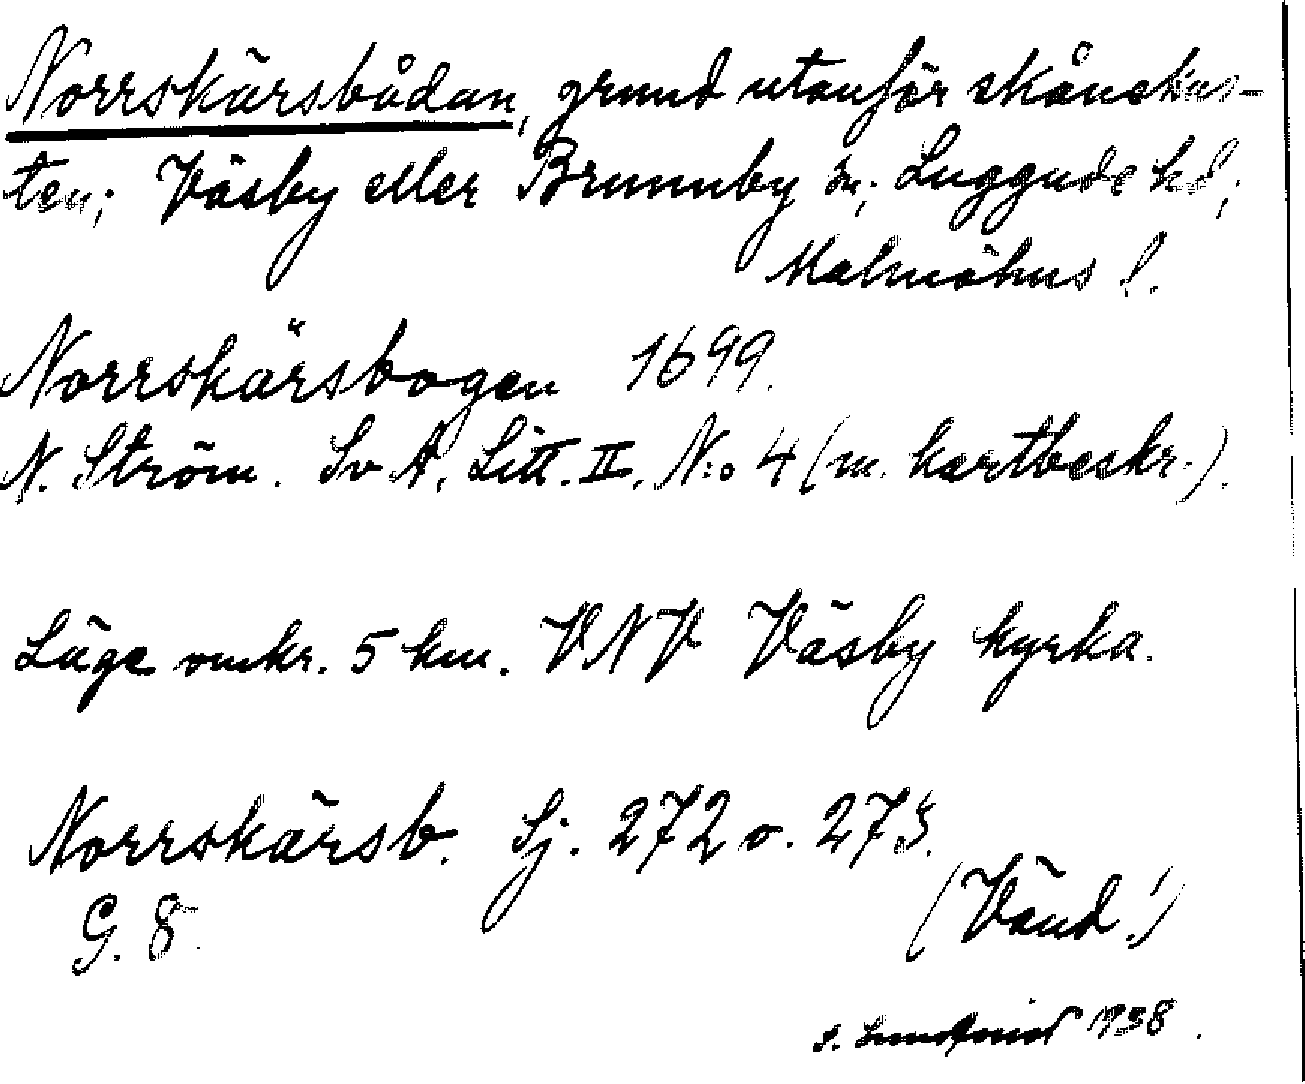 Norrskärsbådan, grund utanför skånekus-
ten; Väsby eller Brunnby sn; Luggude hd;
Malmöhus l.
Norrskärsbogen 1699.
N. Ström. Sv A, Litt. II, N:o 4 (m. kartbeskr.).
Läge omkr. 5 km. VNV Väsby kyrka.
Norrskärsb. Sj. 272 o. 273.
G. 8.
(Vänd!)
S. Lundqvist 1938.